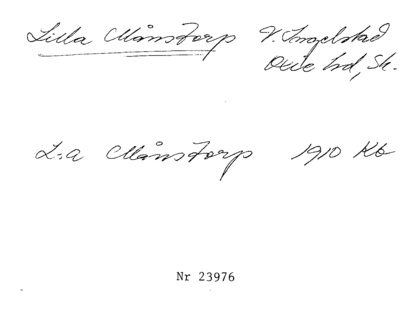 Lilla Månstorp V. Ingelstad
Oxie hd, Sk.
L:a Månstorp 1910 Kb
Nr 23976